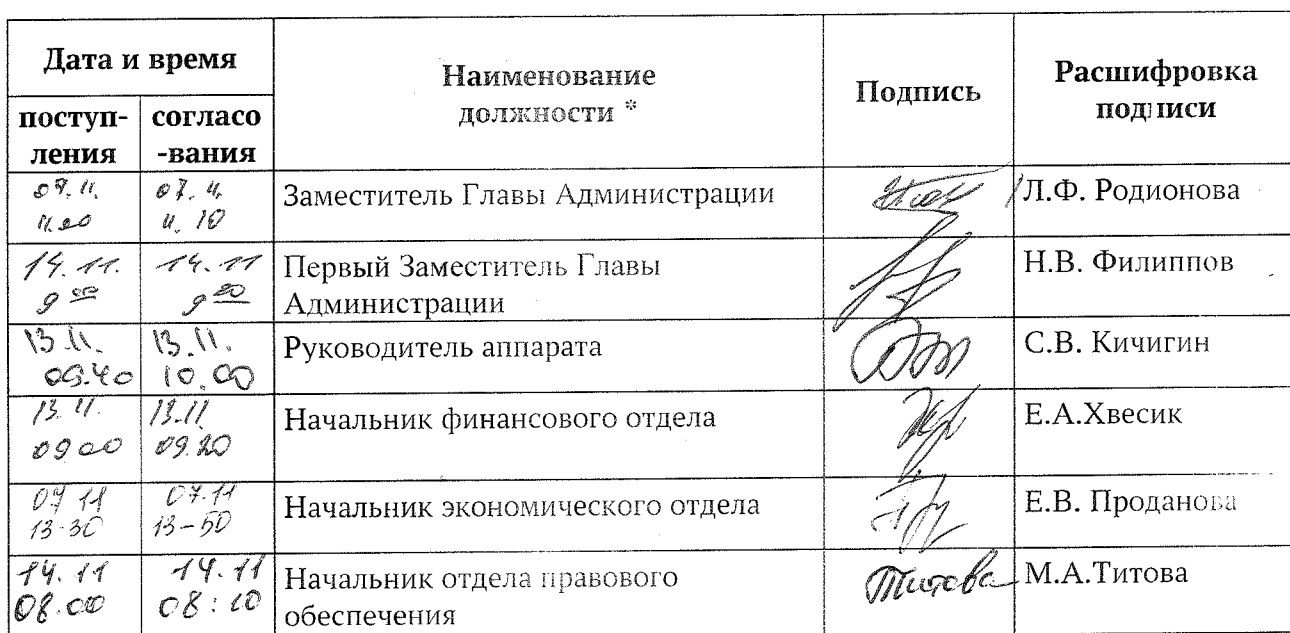 Дата и время
Наименование
должности *
Подпись
Расшифровка
подписи
поступ-
ления
согласо
-вания
07.11.
11.00
07.11.
11.10
Заместитель Главы Администрации
Л.Ф. Родионова
14.11.
9 00
14.11
9 20
Первый Заместитель Главы
Администрации
Н.В. Филиппов
13.11.
09.40
13.11.
10.00
Руководитель аппарата
С.В. Кичигин
13.11.
09 00
13.11
09.20
Начальник финансового отдела
Е.А.Хвесик
07 11
13-30
07.11
13-50
Начальник экономического отдела
Е.В. Проданова
14.11
08.00
14.11
08:10
Начальник отдела правового
обеспечения
Титова
М.А.Титова